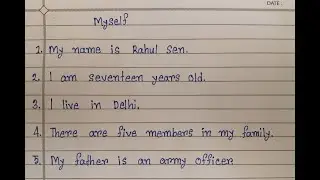 DATE:
Myself
1. My name is Rahul Sen.
2. I am seventeen years old.
3. I live in Delhi.
4. There are five members in my family.
5. My father is an army officer